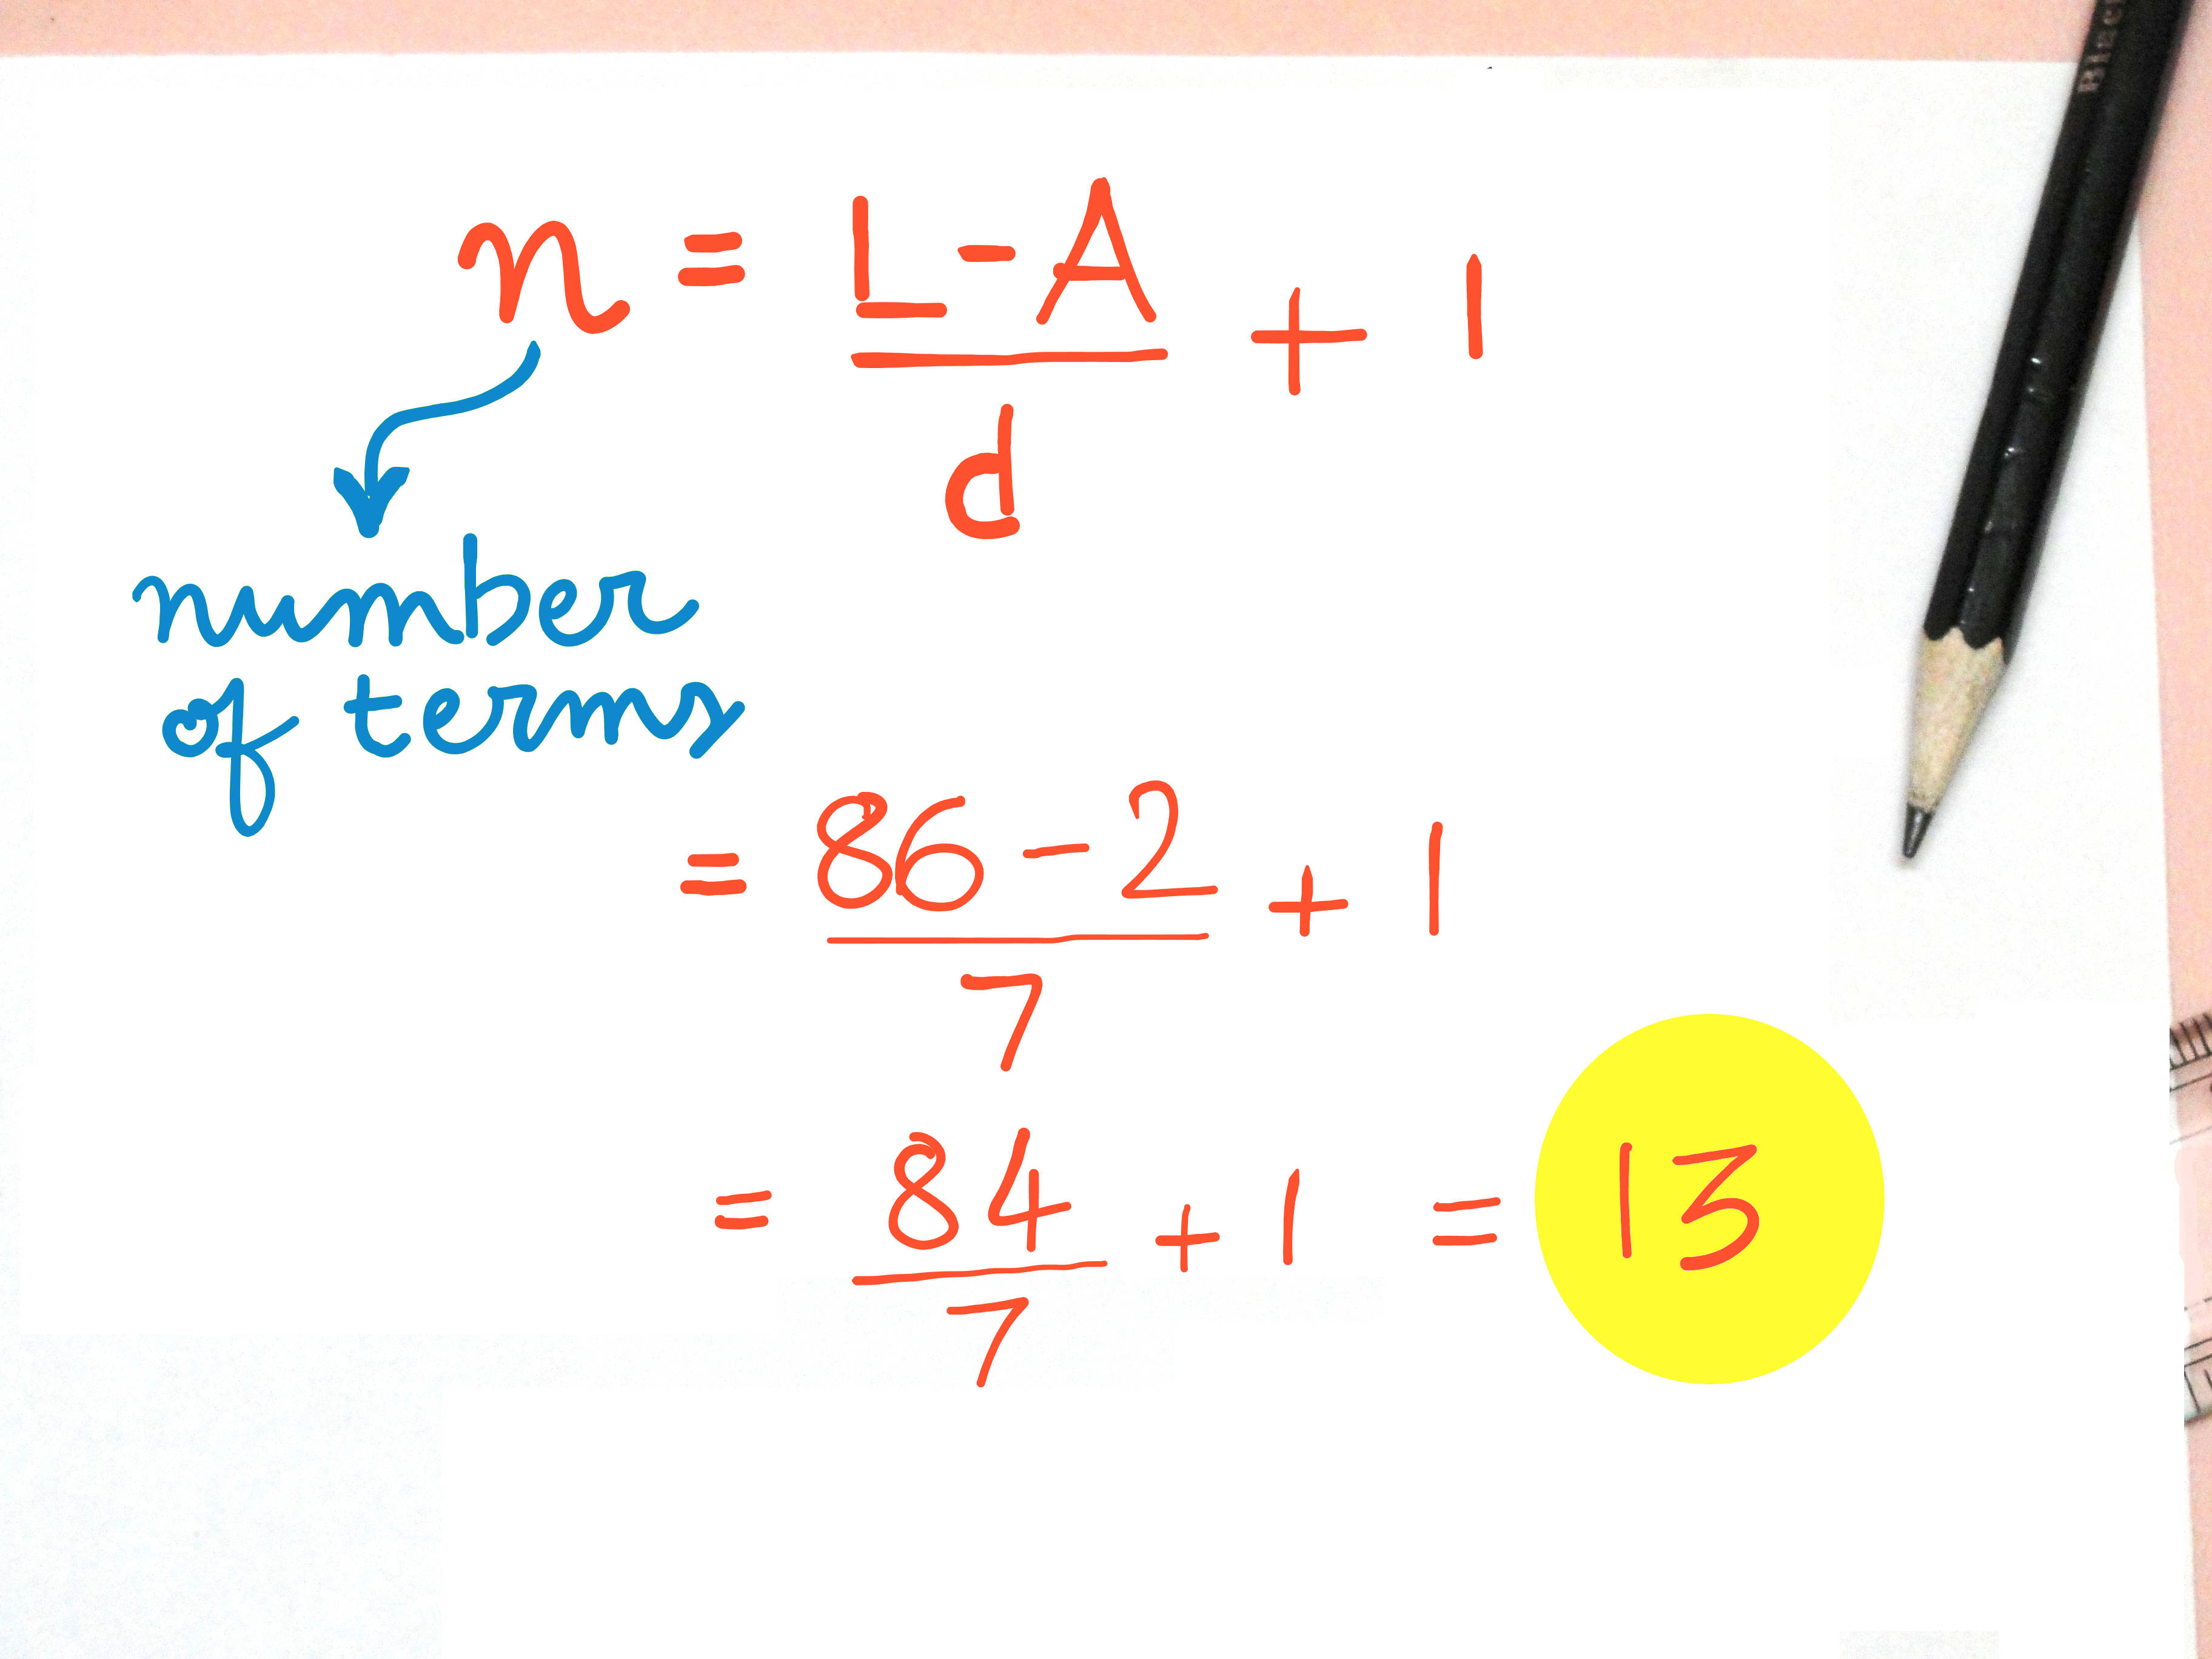 n = L - A / d + 1
number
of terms
= 86 - 2 / 7 + 1
= 84 / 7 + 1 = 13